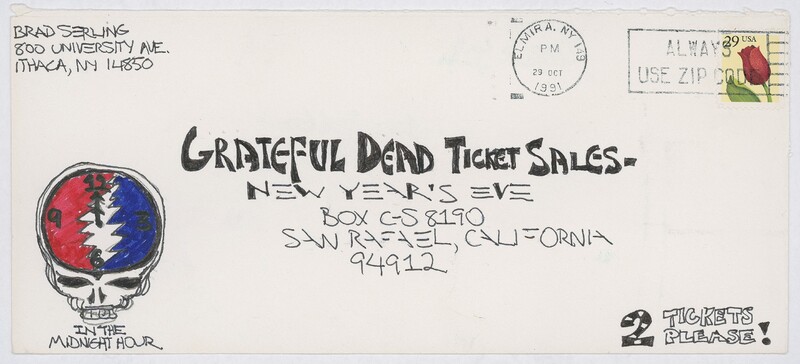 BRAD SERLING
800 UNIVERSITY AVE.
ITHACA, NY 14850
ELMIRA. NY 149
PM
29 OCT
1991
ALWAYS
USE ZIP CODE
29 USA
GRATEFUL DEAD TICKET SALES-
NEW YEAR'S EVE
BOX C-S 8190
SAN RAFAEL, CALIFORNIA
94912
12
9 3
6
IN THE
MIDNIGHT HOUR
2 TICKETS
PLEASE!